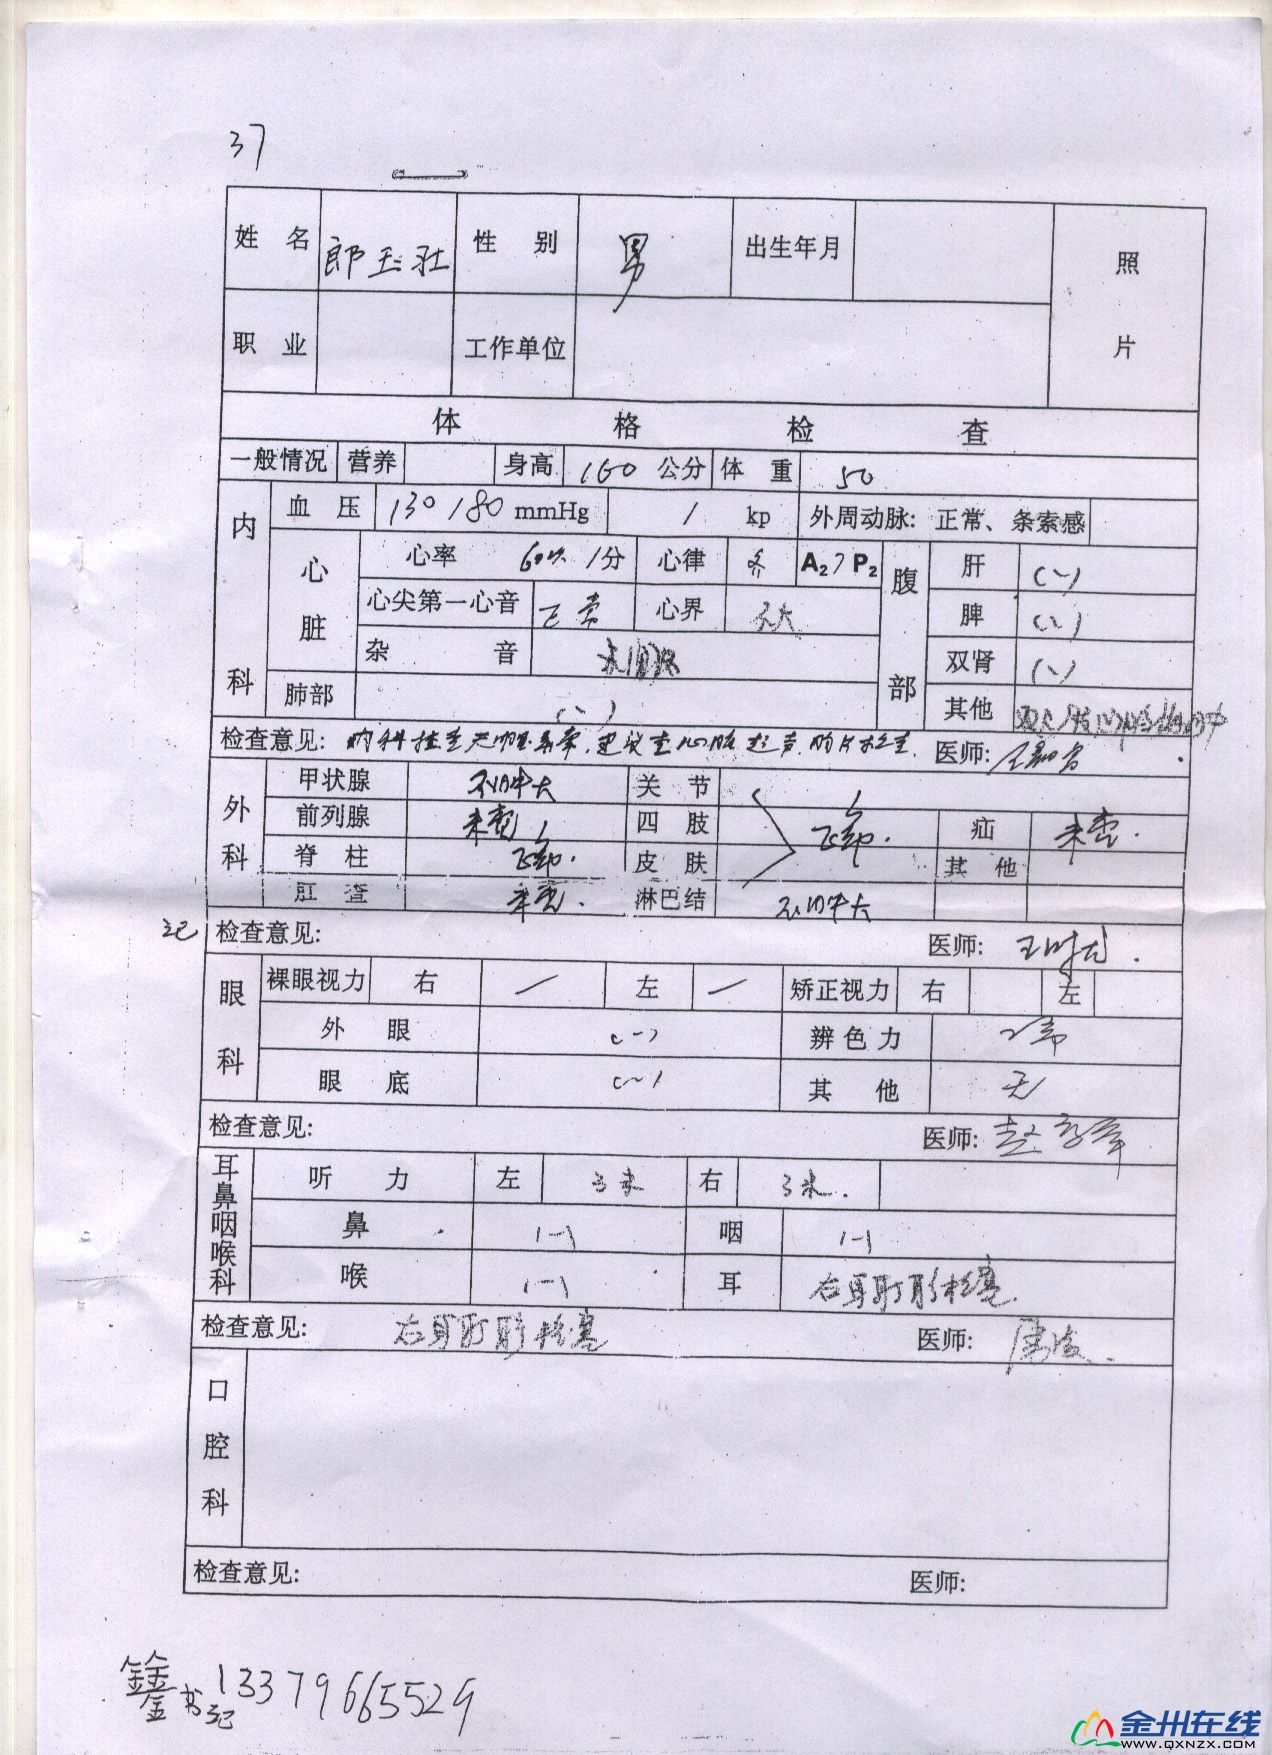 37
姓名 郎玉社 性别 男 出生年月 照片
职业 工作单位
体格检查
一般情况 营养 身高 160 公分 体重 50
内科 血压 130/80 mmHg / kp 外周动脉: 正常、条索感
心脏 心率 60次/分 心律 齐 A2>P2 腹部 肝 (-)
心尖第一心音 正常 心界 不大 脾 (-)
杂音 未闻及 双肾 (-)
肺部 (-) 其他
检查意见: 内科检查无 建议查心脏超声 胸片检查 医师:
外科 甲状腺 不肿大 关节
前列腺 未查 四肢 正常. 疝 未查.
脊柱 正常. 皮肤 其他
肛查 未查. 淋巴结 不肿大
记 检查意见: 医师:
眼科 裸眼视力 右 — 左 — 矫正视力 右 左
外眼 (-) 辨色力
眼底 (-) 其他 无
检查意见: 医师:
耳鼻咽喉科 听力 左 3米 右 3米.
鼻 (-) 咽 (-)
喉 (-) 耳 右耳耵聍栓塞
检查意见: 右耳耵聍栓塞 医师:
口腔科
检查意见: 医师:
鑫书记 13379665529
金州在线
www.QXNZX.com